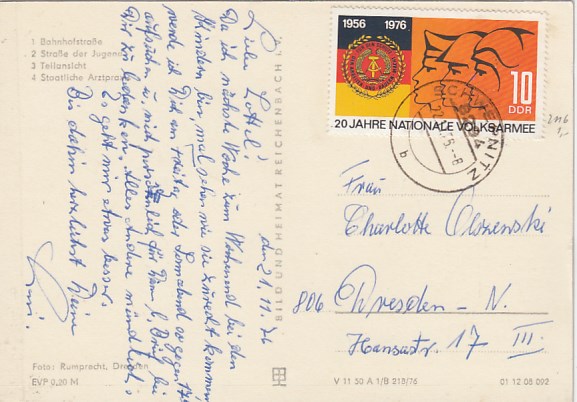 1 Bahnhofstraße
2 Straße der Jugend
3 Teilansicht
4 Staatliche Arztpraxis
den 21.11.76
Liebe Lottel!
Da ich nächste Woche zum Wochenend bei den
Kindern bin, mal sehen wie sie zurecht kommen
werde ich Dich am Freitag oder Sonnabend so gegen 17
aufsuchen u. mich persönlich für Deinen l. Brief bei
Dir zu bedanken. Alles Andere mündlich.
Es geht mir etwas besser.
Bis dahin herzlichst Deine
Foto: Rumprecht, Dresden
EVP 0,20 M
BILD UND HEIMAT REICHENBACH
1956 1976
10
DDR
20 JAHRE NATIONALE VOLKSARMEE
SCHWEPNITZ
b
2116
Frau
Charlotte Olszenski
806 Dresden - N.
Hansastr. 17 III
V 11 50 A 1/B 218/76
01 12 08 092